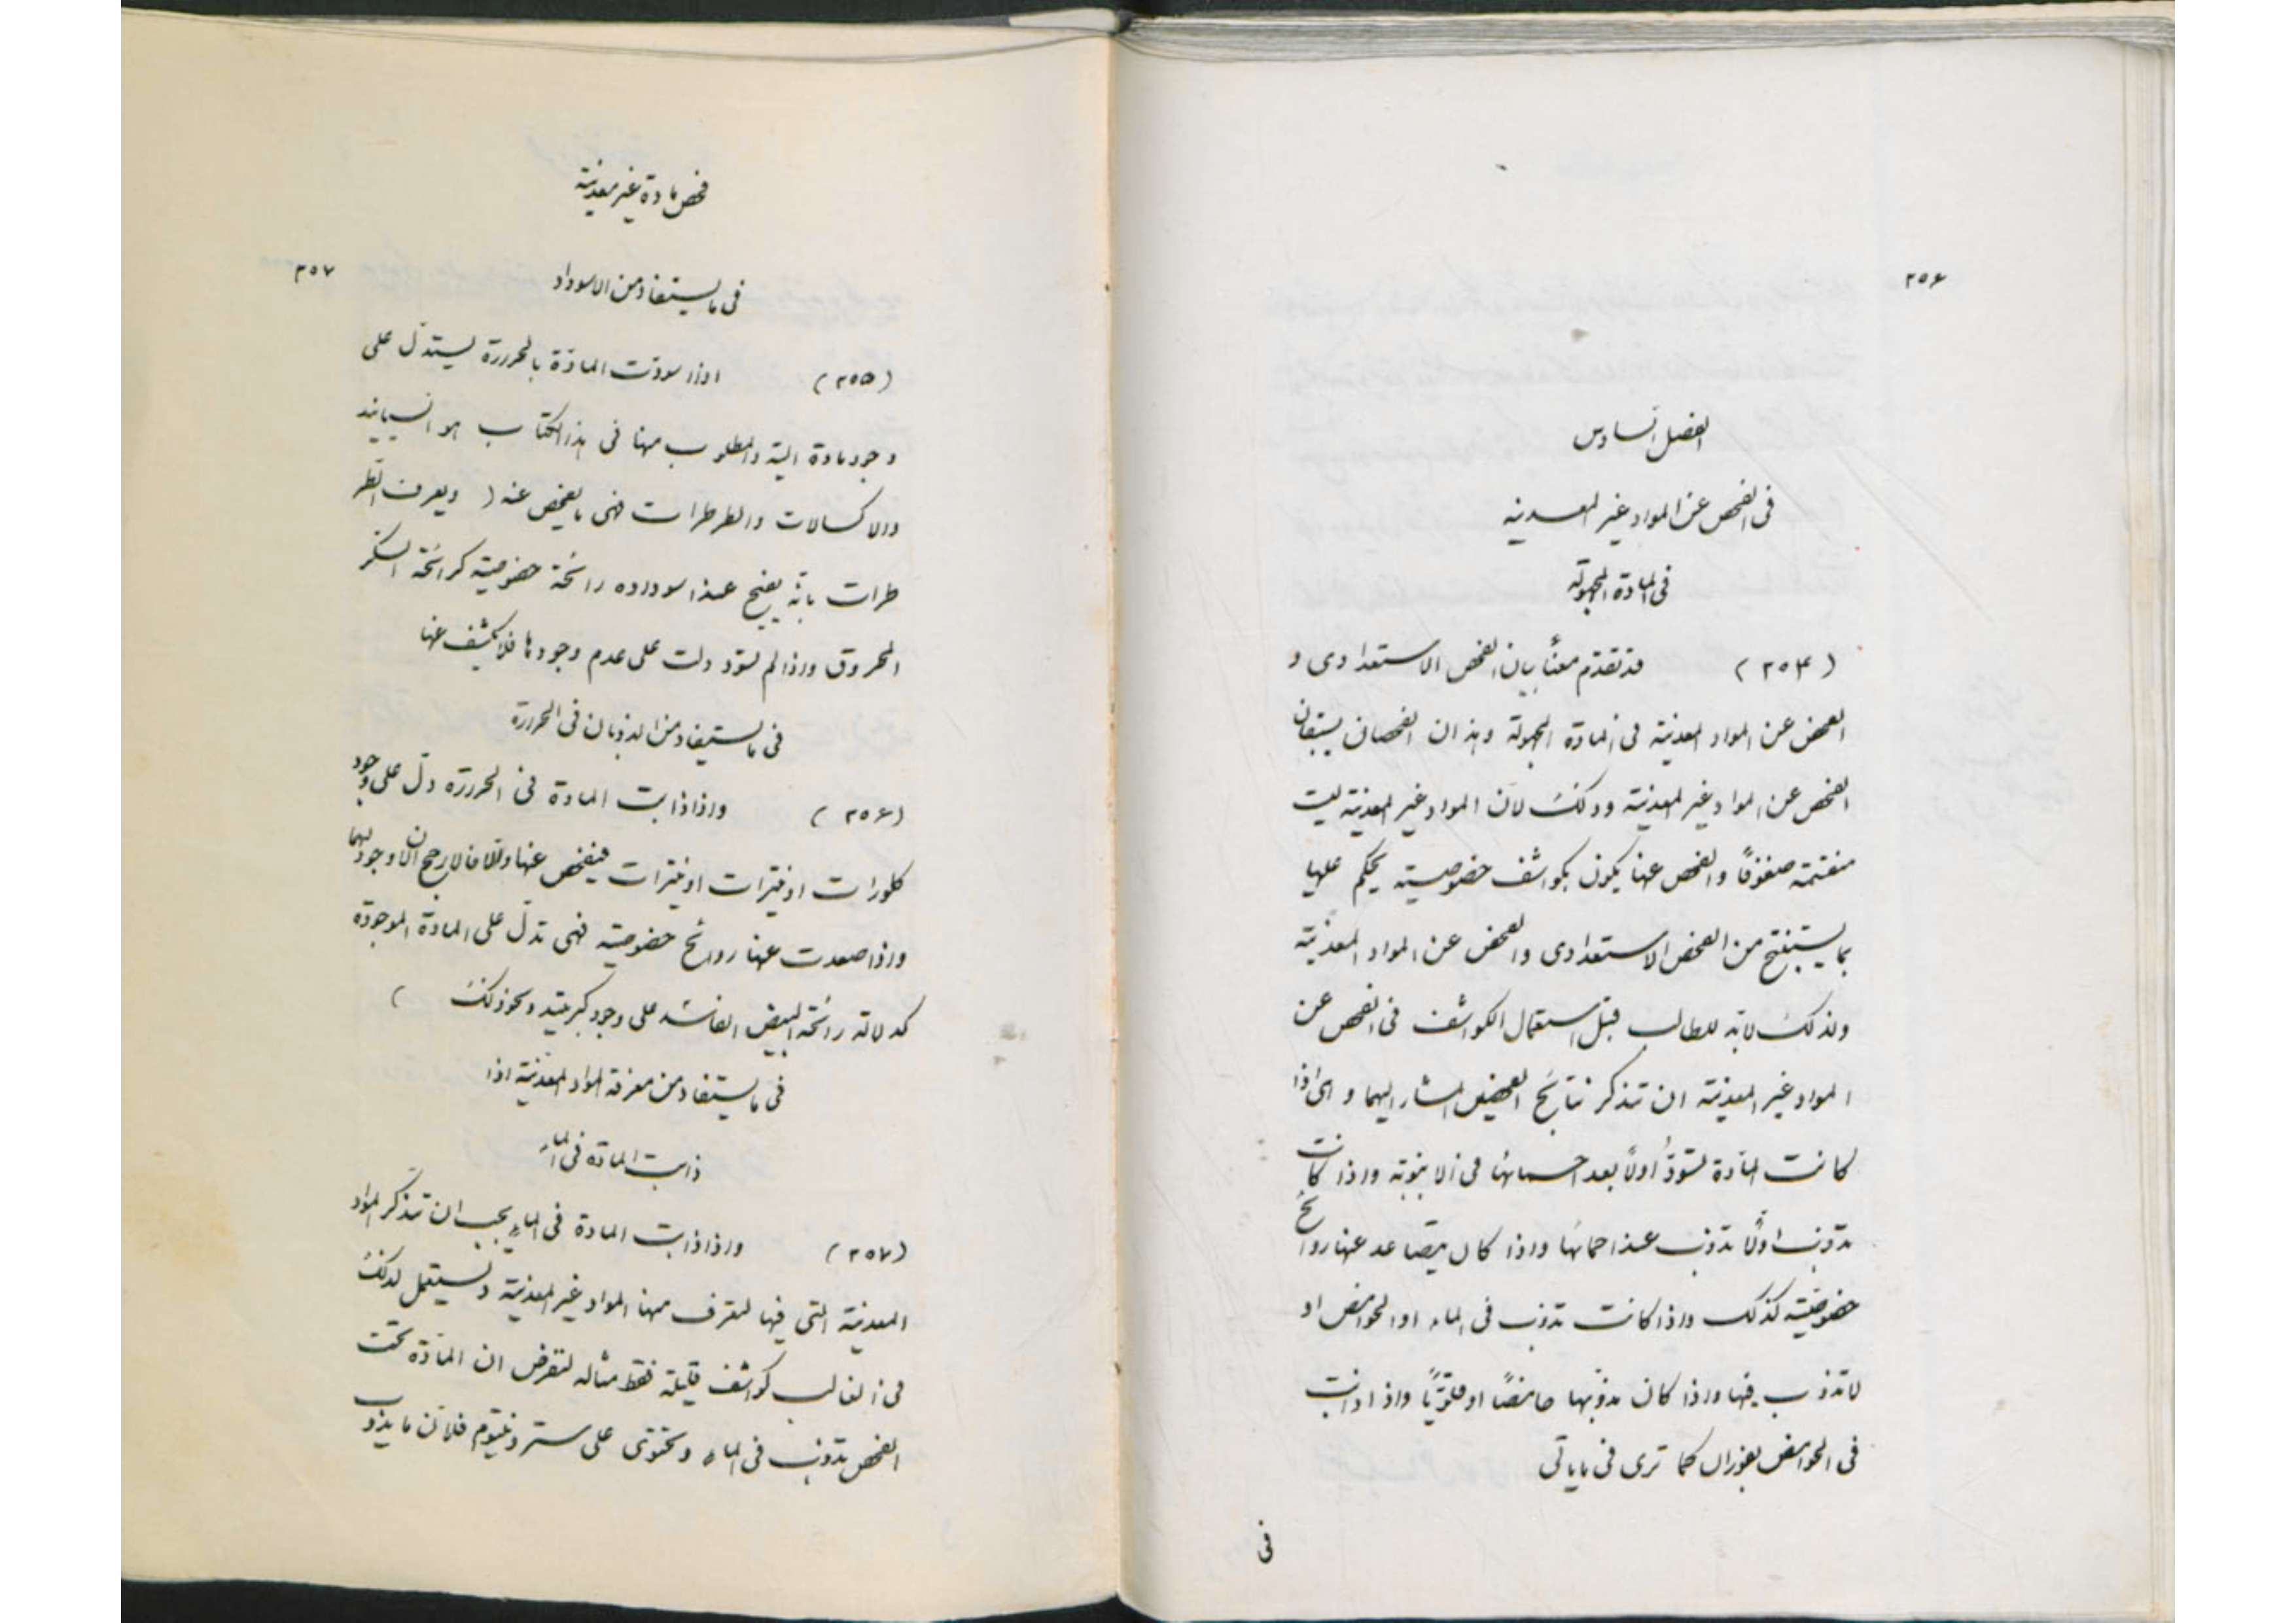 ٢٥٦
الفصل السادس
فى الفحص عن المواد غير المعدنيه
فى المادة المجهولة
(٢٥٤) قد تقدّم معنا بيان الفحص الاستعدادى و
الفحص عن المواد المعدنية فى المادة المجهولة وهذان الفحصان يسبقان
الفحص عن المواد غير المعدنية وذلك لان المواد غير المعدنية ليست
منقسمة صفوفًا والفحص عنها يكون بكواشف خصوصية يحكم عليها
بما يستنتج من الفحص الاستعدادى والفحص عن المواد المعدنية
ولذلك لابد للطالب قبل استعمال الكواشف فى الفحص عن
المواد غير المعدنية ان تتذكر نتائج الفحصين المشار اليهما و اى اذا
كانت المادة تسودّ اولاً بعد احمائها فى الانبوبة واذا كانت
تذوب اولا تذوب عند احمائها واذا كان يتصاعد عنها روائح
خصوصيّة كذلك واذا كانت تذوب فى الماء او الحوامض او
لا تذوب فيها واذا كان مذوّبها حامضًا او قلويًّا واذا ذابت
فى الحوامض بفوران كما ترى فى ما ياتى
فى
فحص مادة غير معدنية
فى ما يستفاد من الاسوداد ٢٥٧
(٢٥٥) اذا سودّت المادّة بالحرررة يستدل على
وجود مادة الية والمطلوب منها فى هذا الكتاب هو السيانيد
والاكسالات والطرطرات فهى ما يفحص عنه ( ويعرف الطر
طرات بانّه يفيح عند اسوداده رائحة خصوصيّة كرائحة السكر
المحروق واذا لم تسوّد دلت على عدم وجودها فلا يكشف عنها
فى ما يستفاد من الذوبان فى الحرررة
(٢٥٦) واذا ذابت المادة فى الحرررة دلّ على وجود
كلورات او نيترات او نيترات فيفحص عنها والا فالارجح ان لا وجود لهما
واذا صعدت عنها روائح خصوصية فهى تدلّ على المادة الموجودة
كدلالة رائحة البيض الفاسد على وجود كبريتيد ونحو ذلك )
فى ما يستفاد من معرفة المواد المعدنية اذا
ذابت المادة فى الماء
(٢٥٧) واذا ذابت المادة فى الماء يجب ان تتذكر المواد
المعدنية التى فيها لتعرف منها المواد غير المعدنية وتستعمل لذلك
فى الغالب كواشف قليلة فقط مثاله لنفرض ان المادّة تحت
الفحص تذوب فى الماء وتحتوى على سترونتيوم فلان ما يذوب